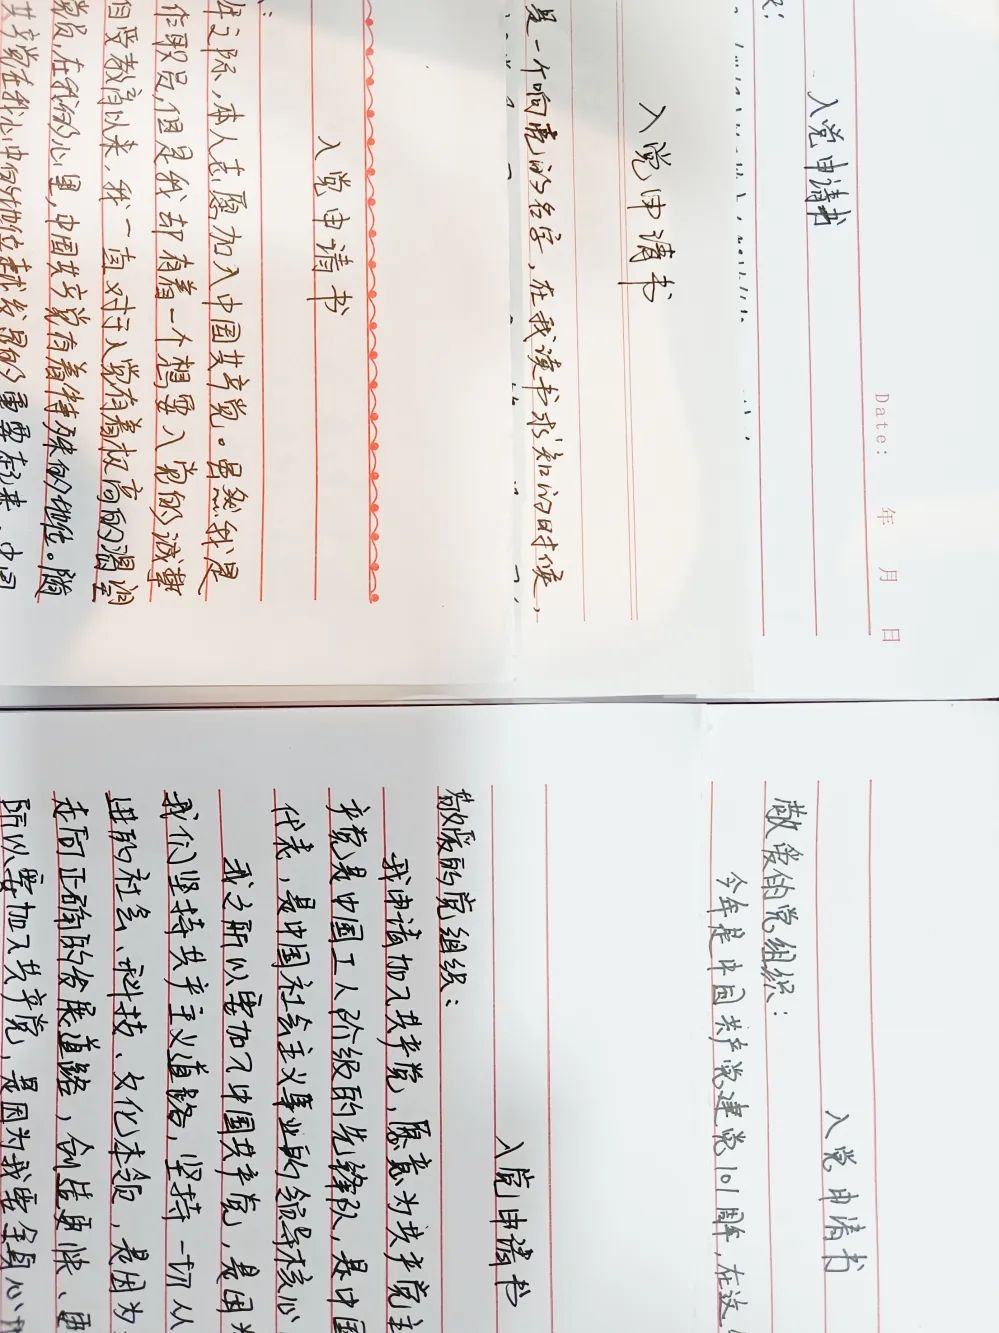 入党申请书
是一个响亮的名字，在我读书求知的时候，
入党申请书
入党申请书
Date: 年 月 日
生之际，本人志愿加入中国共产党。虽然我是
作职员，但是我却有着一个想要入党的诚挚
自受教育以来，我一直对于入党有着极高的渴望
党员，在我的心里，中国共产党有着特殊的地位。随
共产党在我心中的地位
入党申请书
敬爱的党组织：
今年是中国共产党建党101周年，在这
入党申请书
敬爱的党组织：
我申请加入共产党，愿意为共产党主
产党是中国工人阶级的先锋队，是中国
代表，是中国社会主义事业的领导核心
我之所以要加入中国共产党，是因为
我们坚持共产主义道路，坚持一切从
进的社会、科技、文化本领，是因为
走向正确的发展道路，创造更快、更
所以要加入共产党，是因为我要全身心